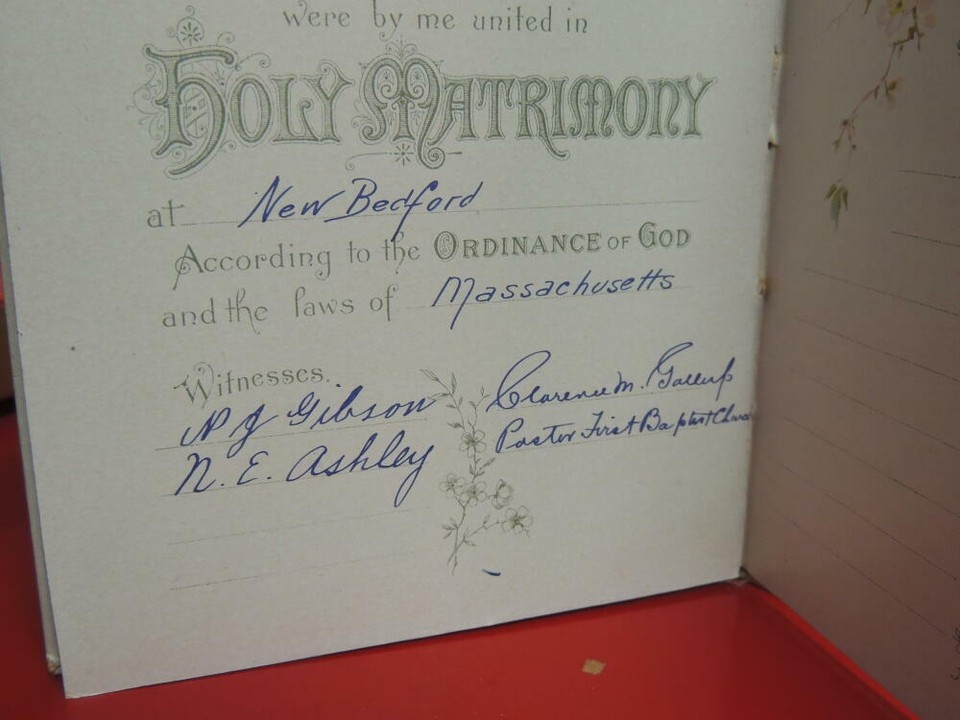 were by me united in
HOLY MATRIMONY
at New Bedford
According to the ORDINANCE OF GOD
and the laws of Massachusetts
Witnesses.
N J Gibson
N. E. Ashley
Clarence M. Gallup
Pastor First Baptist Church